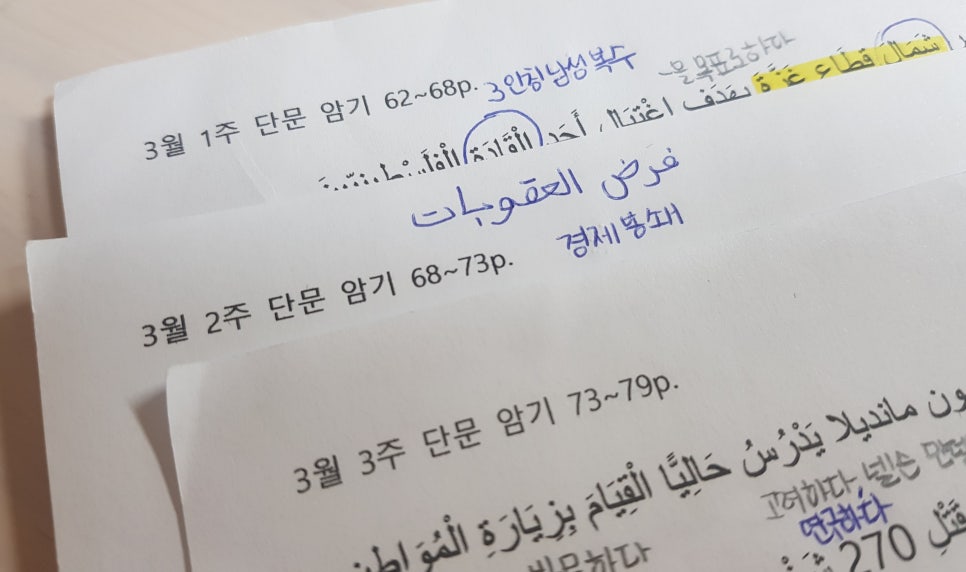 3월 1주 단문 암기 62~68p.
3인칭남성복수
~을 목표로하다
شَمَالَ قِطَاعِ غَزَّةَ بِهَدَفِ اغْتِيَالِ أَحَدِ الْقَادَةِ
فرض العقوبات
경제봉쇄
3월 2주 단문 암기 68~73p.
3월 3주 단문 암기 73~79p.
مانديلا يَدْرُسُ حَالِيًّا الْقِيَامَ بِزِيَارَةِ
고려하다 넬슨
연구하다
방문하다
270